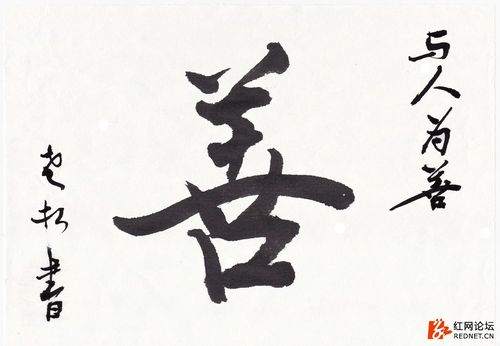 与人为善
善
书
红网论坛
REDNET.CN